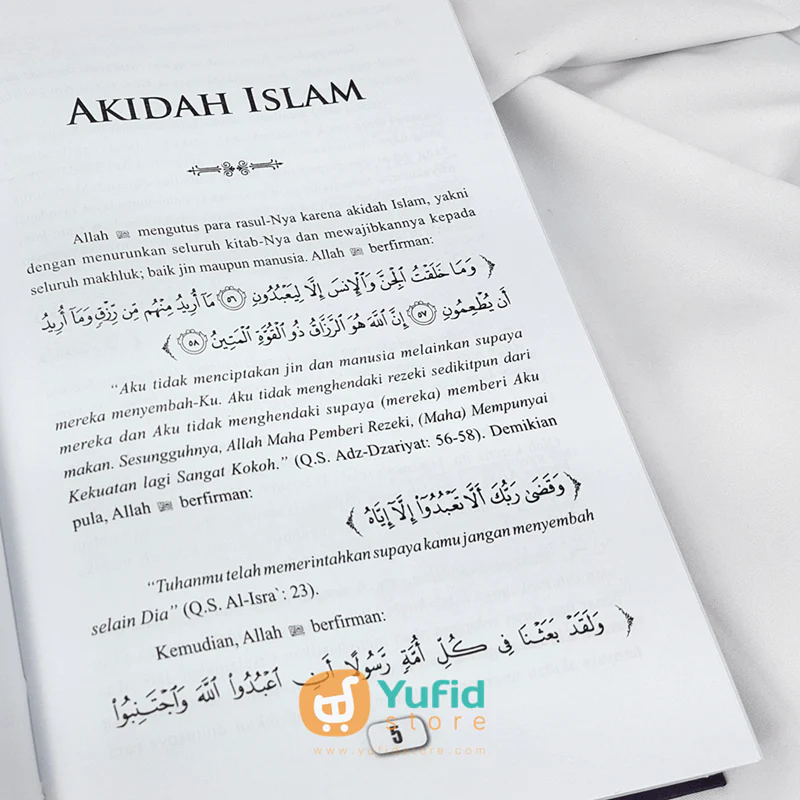 AKIDAH ISLAM
Allah ﷻ mengutus para rasul-Nya karena akidah Islam, yakni
dengan menurunkan seluruh kitab-Nya dan mewajibkannya kepada
seluruh makhluk; baik jin maupun manusia. Allah ﷻ berfirman:
﴿ وَمَا خَلَقْتُ ٱلْجِنَّ وَٱلْإِنسَ إِلَّا لِيَعْبُدُونِ ٥٦ مَآ أُرِيدُ مِنْهُم مِّن رِّزْقٍ وَمَآ أُرِيدُ
أَن يُطْعِمُونِ ٥٧ إِنَّ ٱللَّهَ هُوَ ٱلرَّزَّاقُ ذُو ٱلْقُوَّةِ ٱلْمَتِينُ ٥٨ ﴾
“Aku tidak menciptakan jin dan manusia melainkan supaya
mereka menyembah-Ku. Aku tidak menghendaki rezeki sedikitpun dari
mereka dan Aku tidak menghendaki supaya (mereka) memberi Aku
makan. Sesungguhnya, Allah Maha Pemberi Rezeki, (Maha) Mempunyai
Kekuatan lagi Sangat Kokoh.” (Q.S. Adz-Dzariyat: 56-58). Demikian
pula, Allah ﷻ berfirman:
﴿ وَقَضَىٰ رَبُّكَ أَلَّا تَعْبُدُوٓا۟ إِلَّآ إِيَّاهُ ﴾
“Tuhanmu telah memerintahkan supaya kamu jangan menyembah
selain Dia” (Q.S. Al-Isra`: 23).
Kemudian, Allah ﷻ berfirman:
﴿ وَلَقَدْ بَعَثْنَا فِى كُلِّ أُمَّةٍ رَّسُولًا أَنِ ٱعْبُدُوا۟ ٱللَّهَ وَٱجْتَنِبُوا۟
Yufid
store
5
www.yufidstore.com